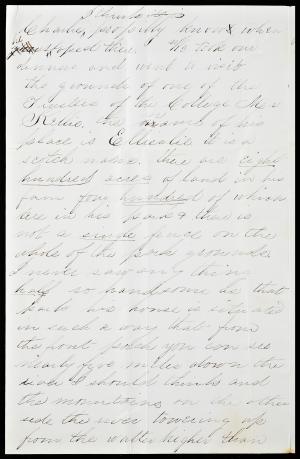 I think it is
Charlie, propobly knows when
we stoped there. We took our
dinner and went to visit
the grounds of one of the
Trustees of the College Mr
Kelly, the name of his
place is Ellerslie it is a
scotch name. there are eight
hundred acres of land in his
farm four hundred of which
are in his park & there is
not a single fence on the
whole of the park grounds.
I never saw any thing
half so handsome as that
park his house is situated
in such a way that from
the front porch you can see
nearly five miles down the
river I should think and
the mountains on the other
side the river towering up
from the water higher than